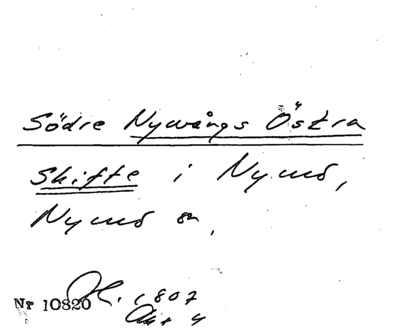 Södre Nywångs Östra
Skifte i Nymö,
Nymö sn,
Nr 10820 1807
Akt 4